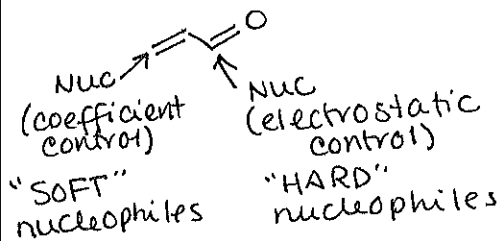 O
Nuc
(coefficient
control)
"SOFT"
nucleophiles
Nuc
(electrostatic
control)
"HARD"
nucleophiles